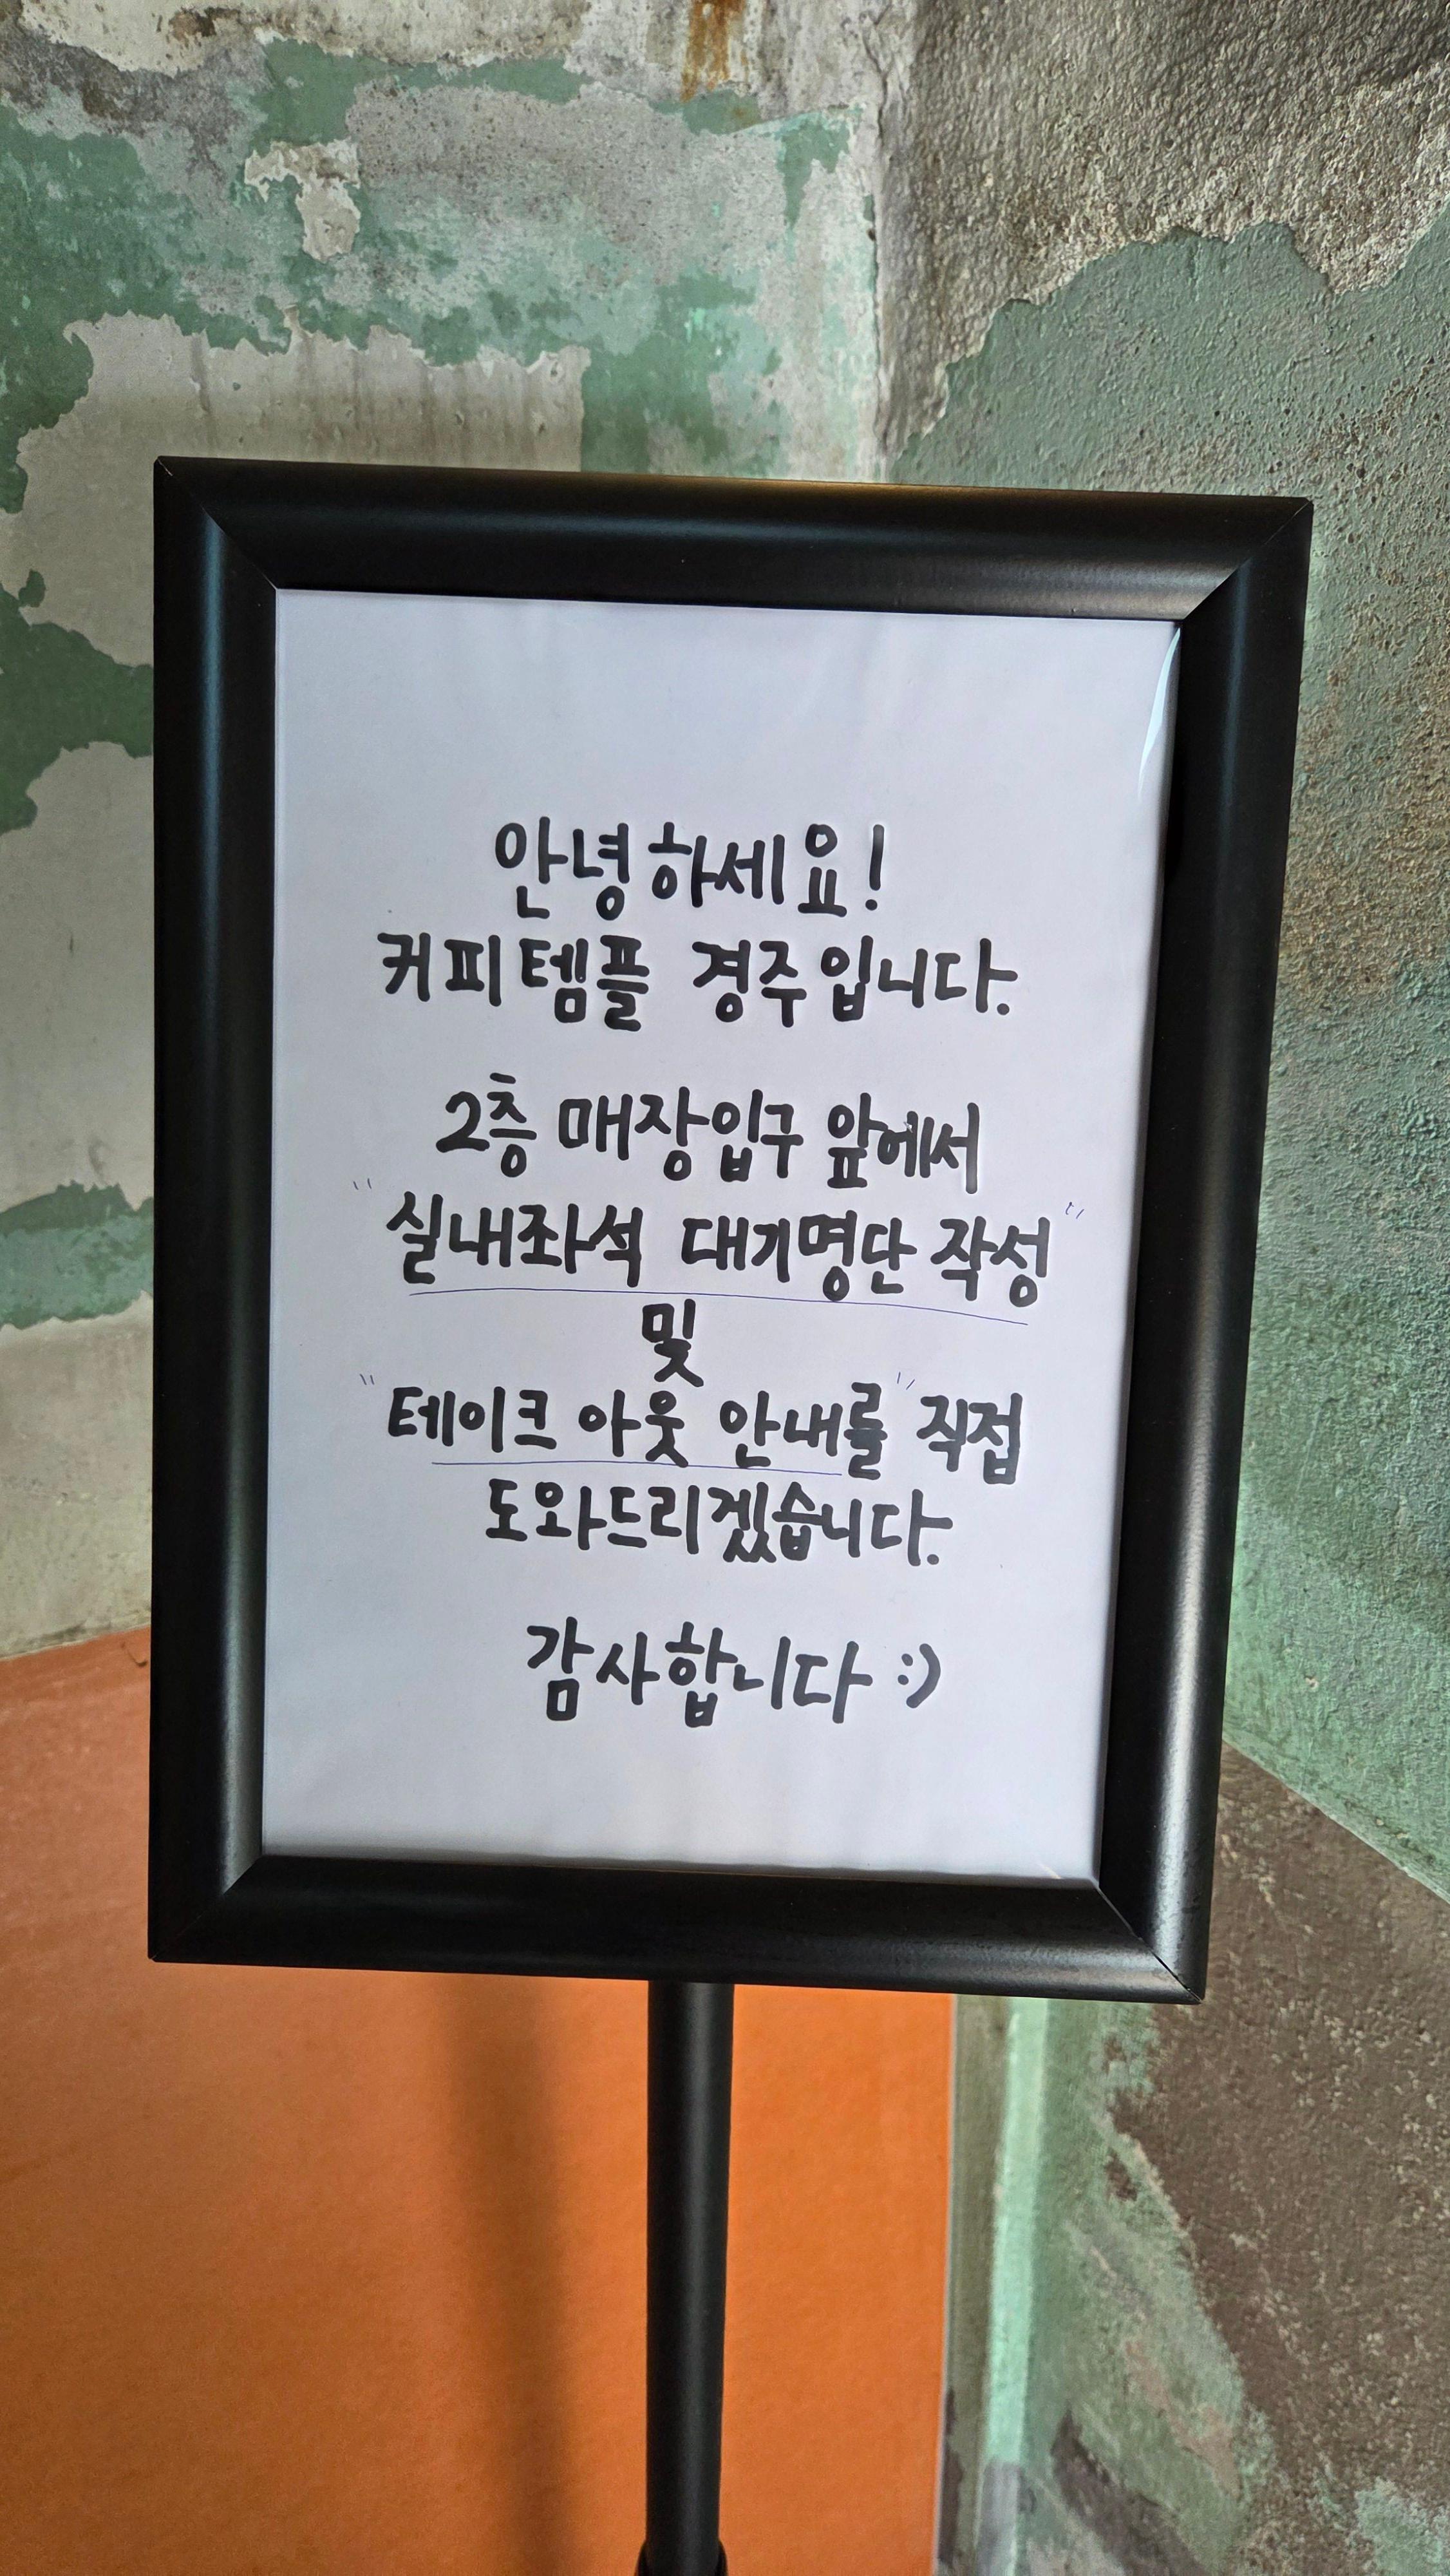 안녕하세요!
커피템플 경주입니다.
2층 매장입구 앞에서
"실내좌석 대기명단 작성"
및
"테이크 아웃 안내를" 직접
도와드리겠습니다.
감사합니다 :)